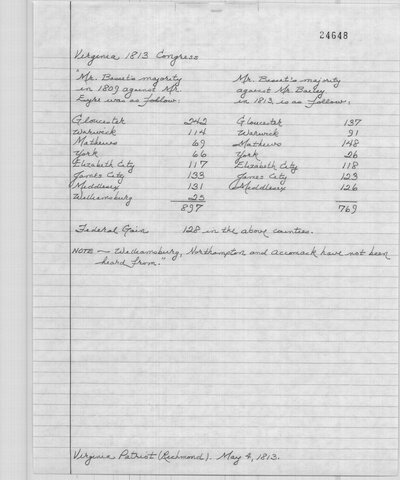 24648
Virginia 1813 Congress
"Mr. Basset's majority
in 1809 against Mr.
Eyre was as follow:
Gloucester 242
Warwick 114
Mathews 69
York 66
Elizabeth City 117
James City 133
Middlesex 131
Williamsburg 25
897
Mr. Basset's majority
against Mr. Bailey
in 1813 is as follow:
Gloucester 137
Warwick 91
Mathews 148
York 26
Elizabeth City 118
James City 123
Middlesex 126
769
Federal Gain 128 in the above counties.
NOTE — Williamsburg, Northampton and Accomack have not been
heard from."
Virginia Patriot (Richmond). May 4, 1813.